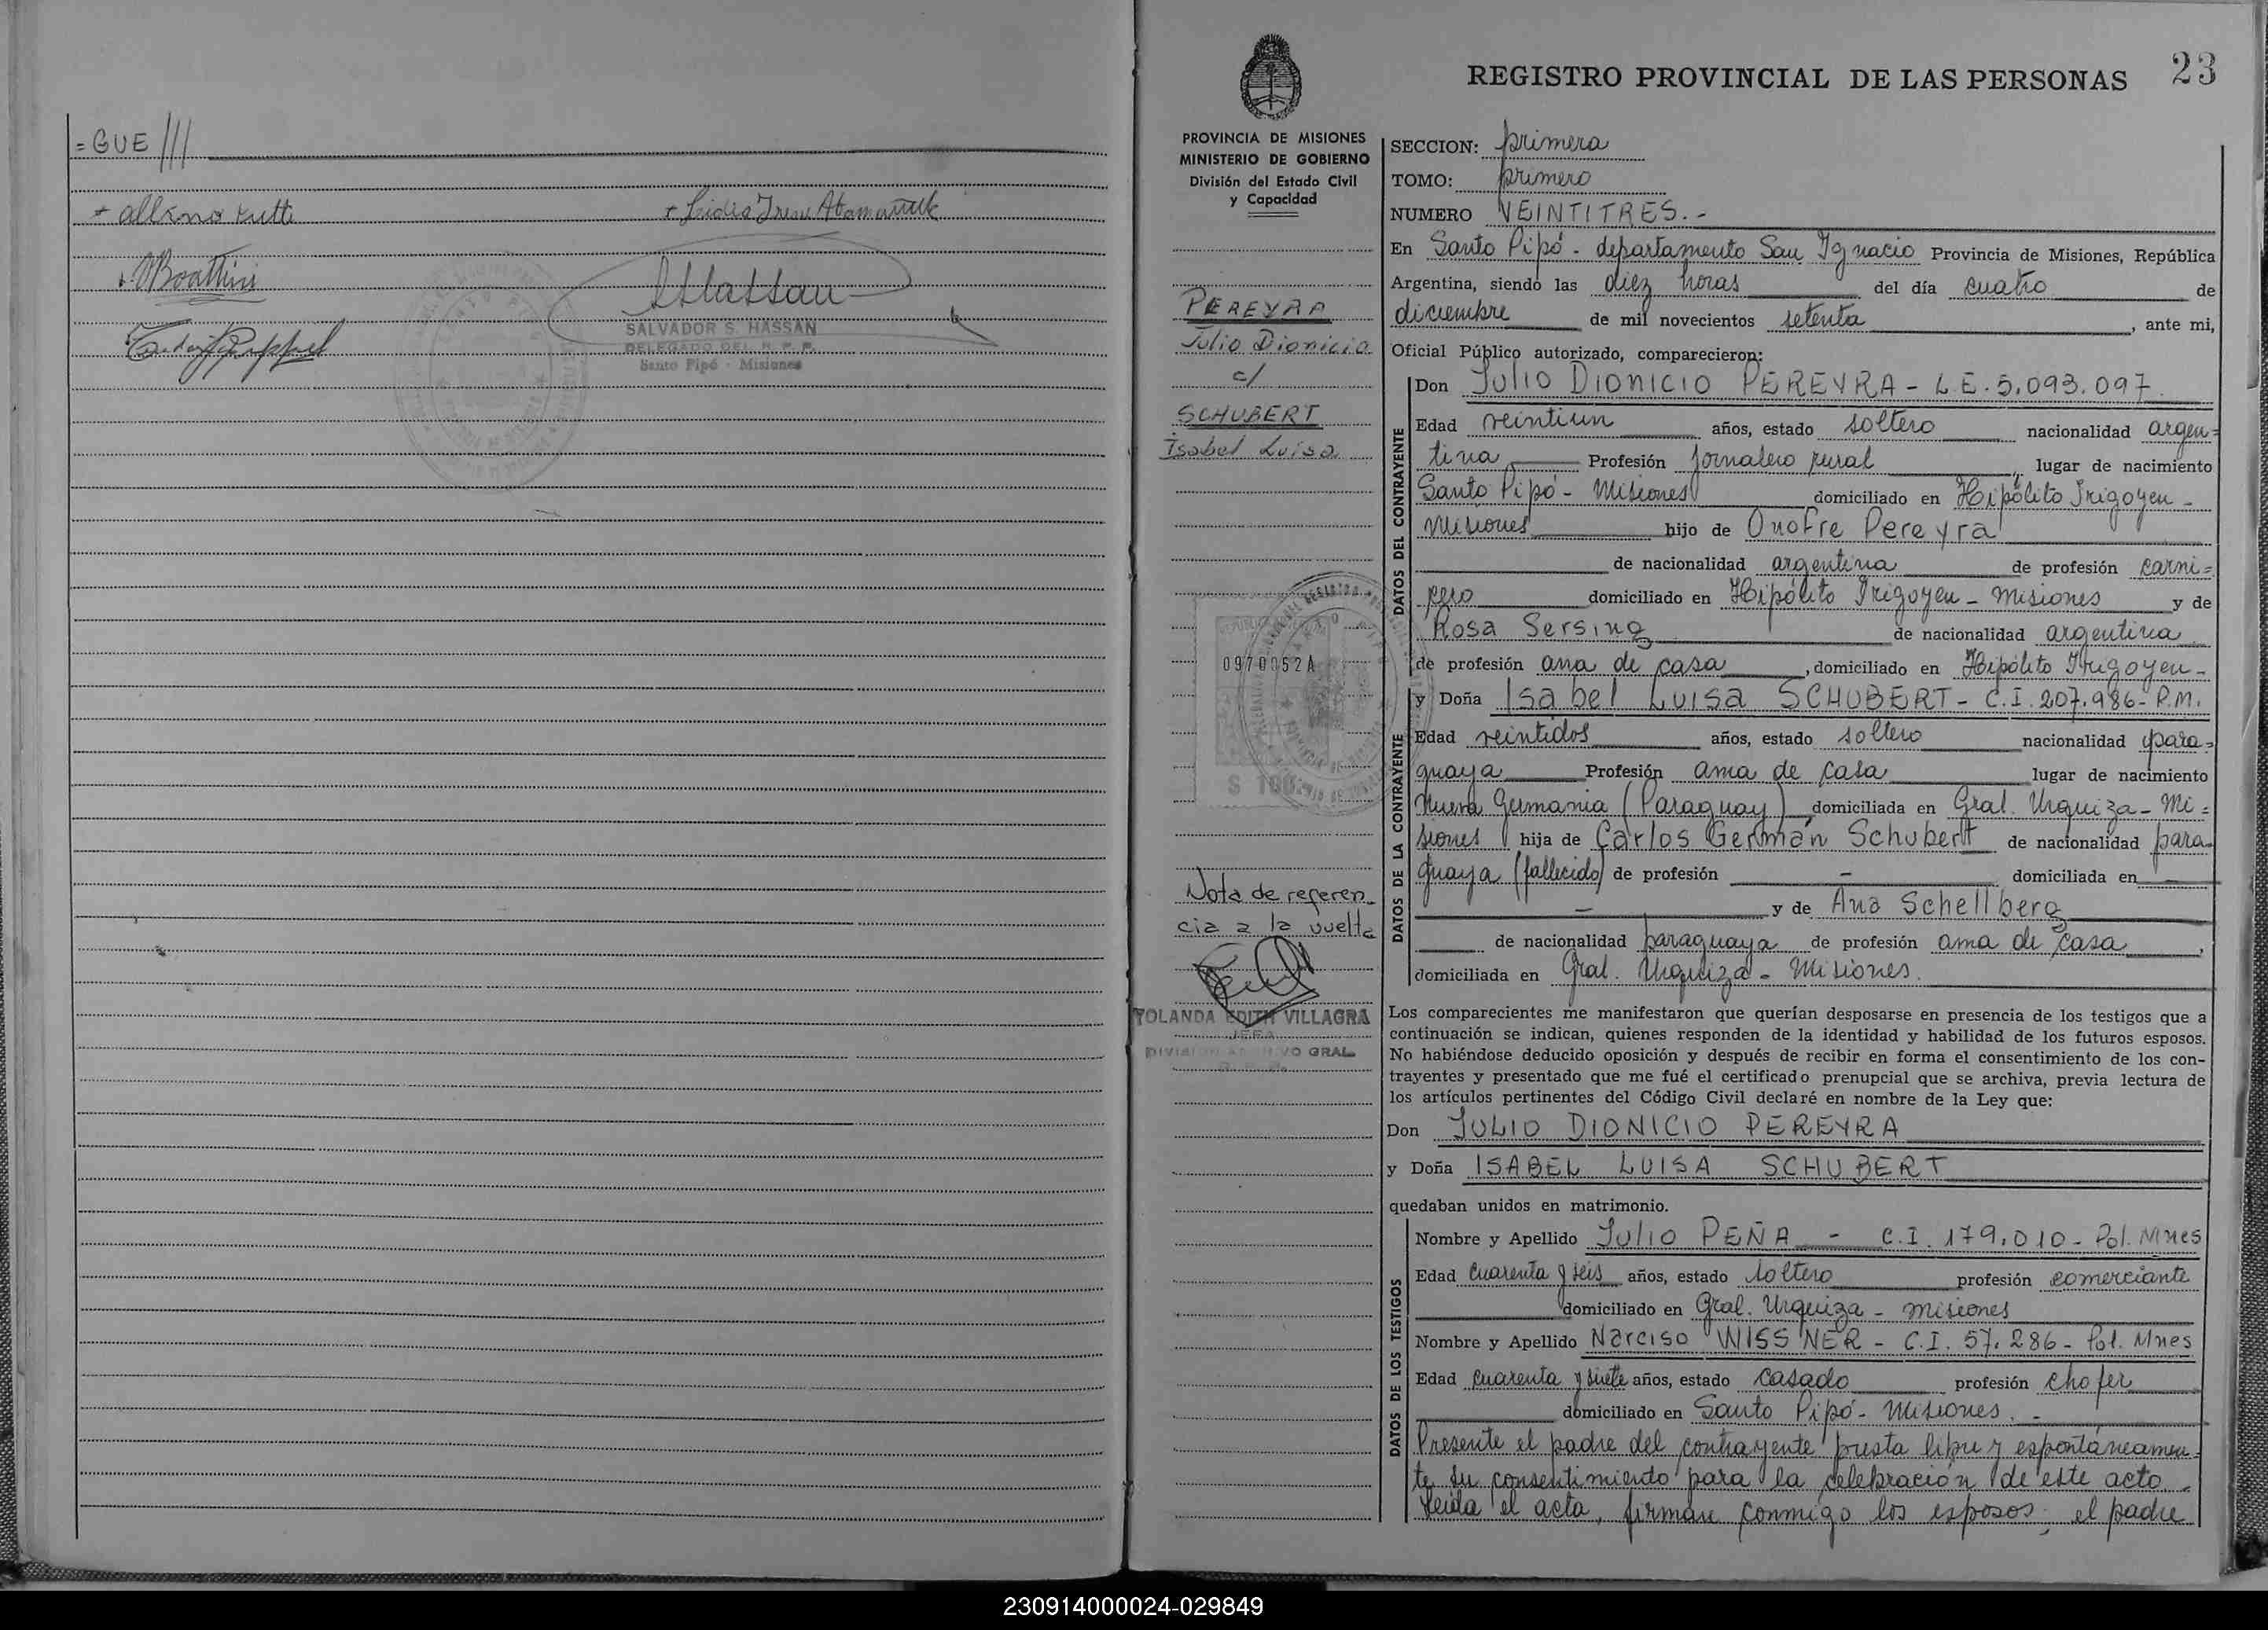 = GUE ///
SALVADOR S. HASSAN
DELEGADO DEL R. P. P.
Santo Pipó - Misiones
REGISTRO PROVINCIAL DE LAS PERSONAS 23
PROVINCIA DE MISIONES
MINISTERIO DE GOBIERNO
División del Estado Civil
y Capacidad
PEREYRA
Julio Dionicio
c/
SCHUBERT
Isabel Luisa
0970052A
Nota de referen
cia a la vuelta
YOLANDA EDITH VILLAGRA
JEFA
SECCION: primera
TOMO: primero
NUMERO VEINTITRES.-
En Santo Pipó - departamento San Ignacio Provincia de Misiones, República
Argentina, siendo las diez horas del día cuatro de
diciembre de mil novecientos setenta, ante mi,
Oficial Público autorizado, comparecieron:
DATOS DEL CONTRAYENTE
Don Julio Dionicio PEREYRA - L.E. 5.093.097
Edad veintiun años, estado soltero nacionalidad argen=
tina Profesión jornalero rural, lugar de nacimiento
Santo Pipó - Misiones domiciliado en Hipólito Irigoyen -
Misiones hijo de Onofre Pereyra
de nacionalidad argentina de profesión carni=
cero domiciliado en Hipólito Irigoyen - Misiones y de
Rosa Sersing de nacionalidad argentina
de profesión ama de casa, domiciliado en Hipólito Irigoyen -
DATOS DE LA CONTRAYENTE
y Doña Isabel Luisa SCHUBERT - C.I. 207.986 - P.M.
Edad veintidos años, estado soltero nacionalidad para=
guaya Profesión ama de casa lugar de nacimiento
Nueva Germania (Paraguay), domiciliada en Gral. Urquiza - Mi=
siones hija de Carlos Germán Schubert de nacionalidad para=
guaya (fallecido) de profesión - domiciliada en -
- y de Ana Schellberg
de nacionalidad paraguaya de profesión ama de casa,
domiciliada en Gral. Urquiza - Misiones.
Los comparecientes me manifestaron que querían desposarse en presencia de los testigos que a
continuación se indican, quienes responden de la identidad y habilidad de los futuros esposos.
No habiéndose deducido oposición y después de recibir en forma el consentimiento de los con-
trayentes y presentado que me fué el certificado prenupcial que se archiva, previa lectura de
los artículos pertinentes del Código Civil declaré en nombre de la Ley que:
Don JULIO DIONICIO PEREYRA
y Doña ISABEL LUISA SCHUBERT
quedaban unidos en matrimonio.
DATOS DE LOS TESTIGOS
Nombre y Apellido Julio PEÑA - C.I. 179.010 - Pol. Mnes
Edad cuarenta y seis años, estado soltero profesión comerciante
domiciliado en Gral. Urquiza - Misiones
Nombre y Apellido Narciso WISSNER - C.I. 57.286 - Pol. Mnes
Edad cuarenta y siete años, estado casado profesión chofer
domiciliado en Santo Pipó - Misiones. -
Presente el padre del contrayente presta libre y espontáneamen=
te su consentimiento para la celebración de este acto.
Leida el acta, firman conmigo los esposos, el padre
230914000024-029849